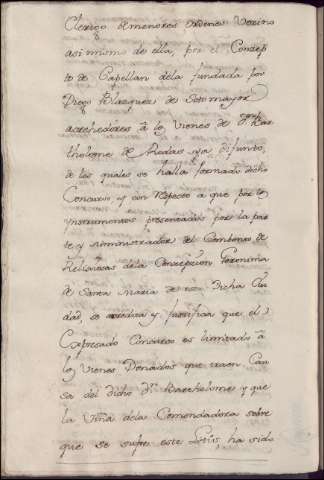 Clerigo de menores ordenes Vecino
asimismo de ella, por el Concep
to de Capellan dela fundada por
Diego Velazquez de Sotomayor
acrehedores â los vienes de Dn. Bar
tholome de Ruedas ya difunto,
de los quales se halla formado dicho
Concurso, y con Respecto a que por los
ynstrumentos presentados por la par
te y Administrador del Combento de
Religiosas dela Concepcion Geronima
de Santa Maria de esta Dicha Ciu
dad se acredita y Justifica que el
Expresado Concurso es limitado â
los Vienes Donados que traen Cau
sa del dicho Dn. Bartholome y que
la Viña dela Comendadora sobre
que se sufre este Litis, ha sido